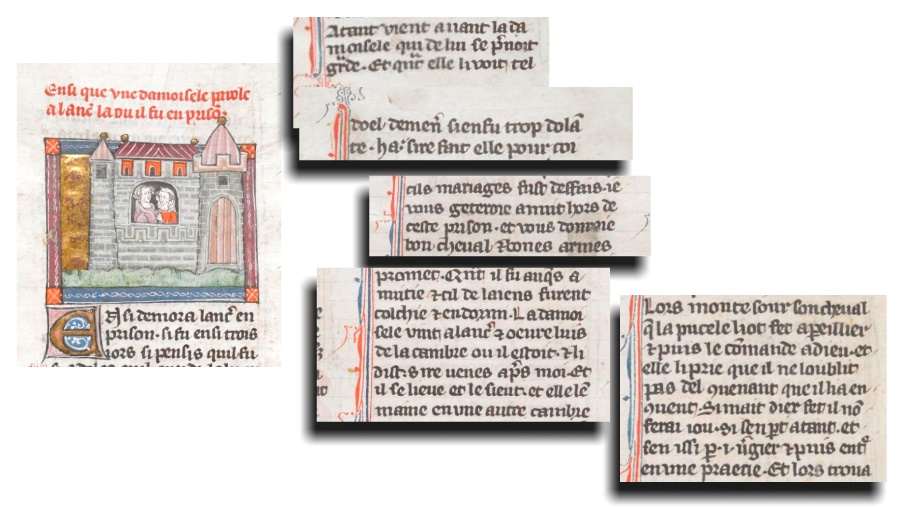 Ensi que vne damoisele parole
a lanc̄ la ou il fu en prisō
Ensi demora lanc̄ en
prison. si fu ensi trois
iors si pensis quil fu
Atant vient auant la da
moisele qui de lui se p̄noit
grde. Et qn̄t elle li voit tel
doel demen̄ si en fu trop dolā
te. ha. sire fait elle pour coi
cils mariages fust deffais. ie
vous geteroie anuit hors de
ceste prison. et vous donroie
bon cheual ⁊ bones armes
promet. Qn̄t il fu anq̄s a
nuitie ⁊ cil de laiens furent
colchie ⁊ endormi. La damoi
sele vint a lanc̄ ⁊ oeure luis
de la cambre ou il estoit. ⁊ li
dist. sire uenes ap̄s moi. Et
il se lieue et le sieut. et elle lē
maine en vne autre cambre
Lors monte sour son cheual
q̄ la pucele li ot fet apeillier
⁊ puis le cōmande a dieu. et
elle li prie que il ne loublit
pas del quenant que il ha en
quent. Si mait diex fet il nō
ferai iou. si sen pt atant. et
sen issi p. i. u̅gier ⁊ puis entͦ
en vne praerie. Et lors troua